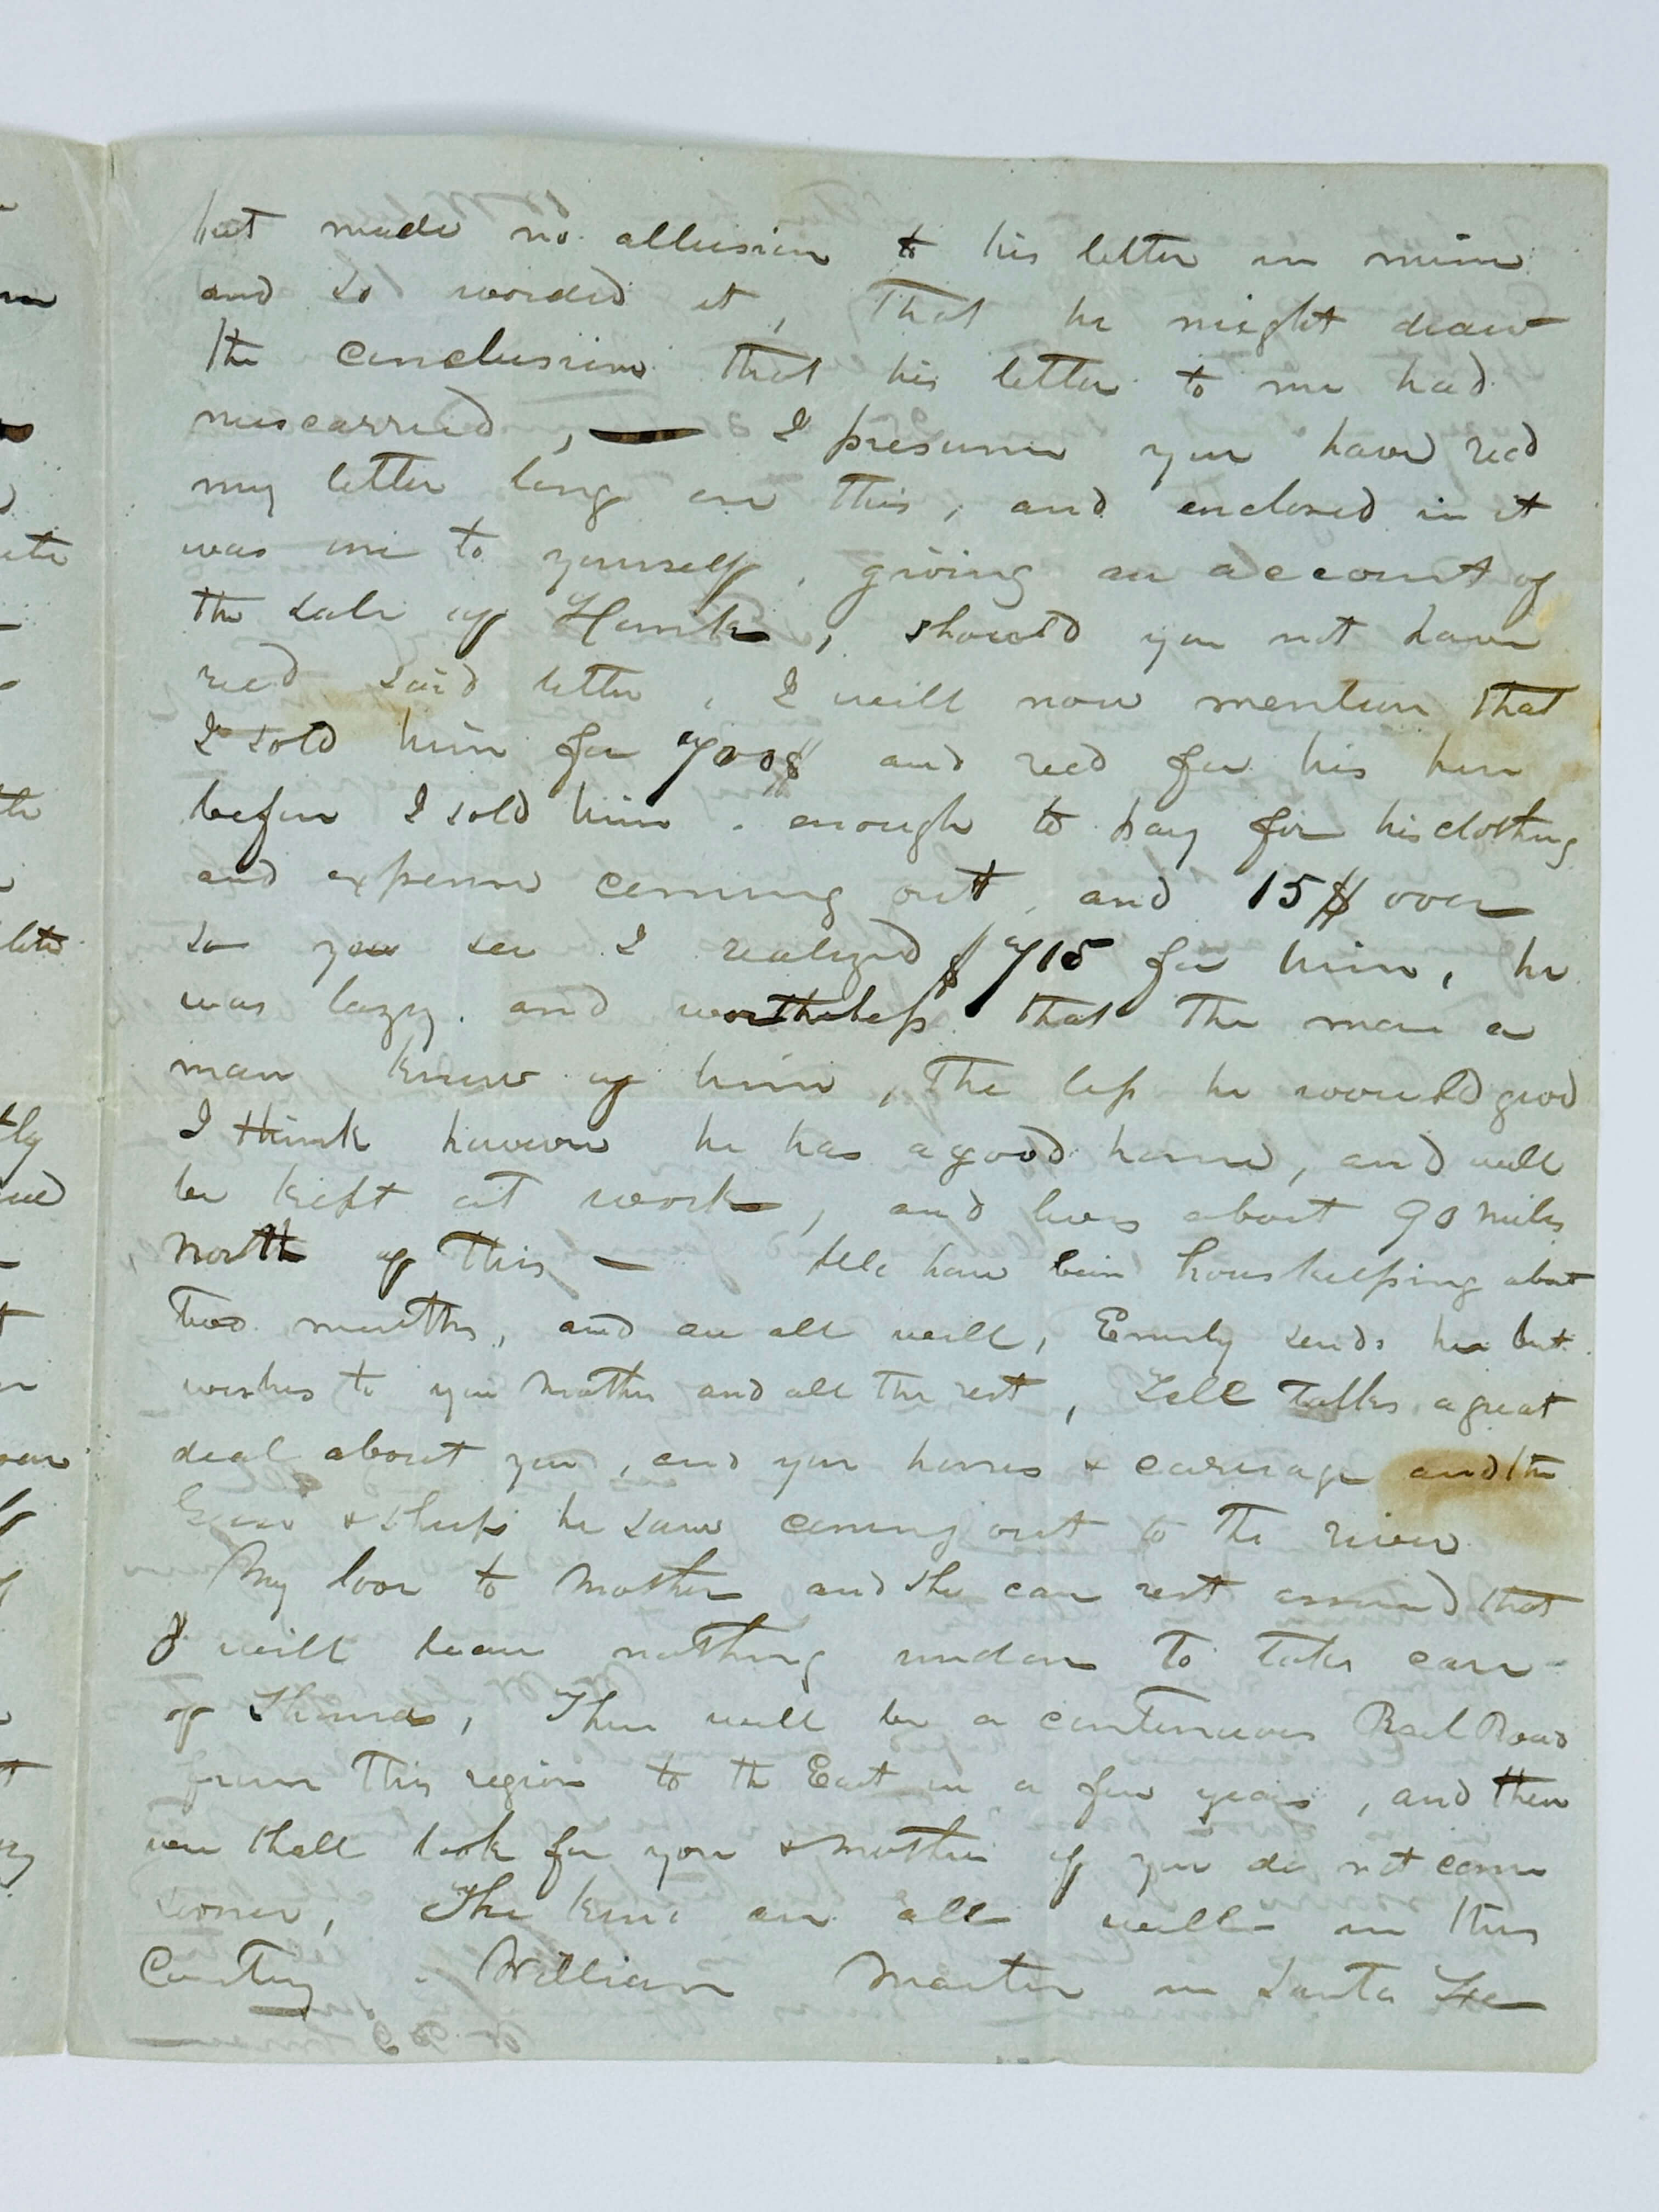 but made no allusion to his letter in mine
and so worded it, That he might draw
the conclusion that his letter to me had
miscarried, — I presume you have recd
my letter long ere This, and enclosed in it
was one to yourself, giving an account of
the sale of Hank, should you not have
recd said letter, I will now mention that
I sold him for 700$ and recd for his hire
before I sold him. enough to pay for his clothing
and expense coming out, and 15$ over
so you see I realized $715 for him, he
was lazy. and worthless that The more a
man knew of him, The less he would give
I think however he has a good home, and will
be kept at work, and lives about 90 miles
North of This — We have been houskeeping about
Two months, and are all well, Emily sends her best
wishes to you Mother and all The rest, Zell Talks a great
deal about you, and your horses & carriage and the
& sheep he saw coming out to The river
My love to Mother and she can rest assured that
I will leave nothing undone To take care
of Thomas, There will be a continuous Rail Road
from This region to th East in a few years, and then
we shall look for you & mother if you do not come
sooner, The are all well in this
Country. William Martin in Santa Fee